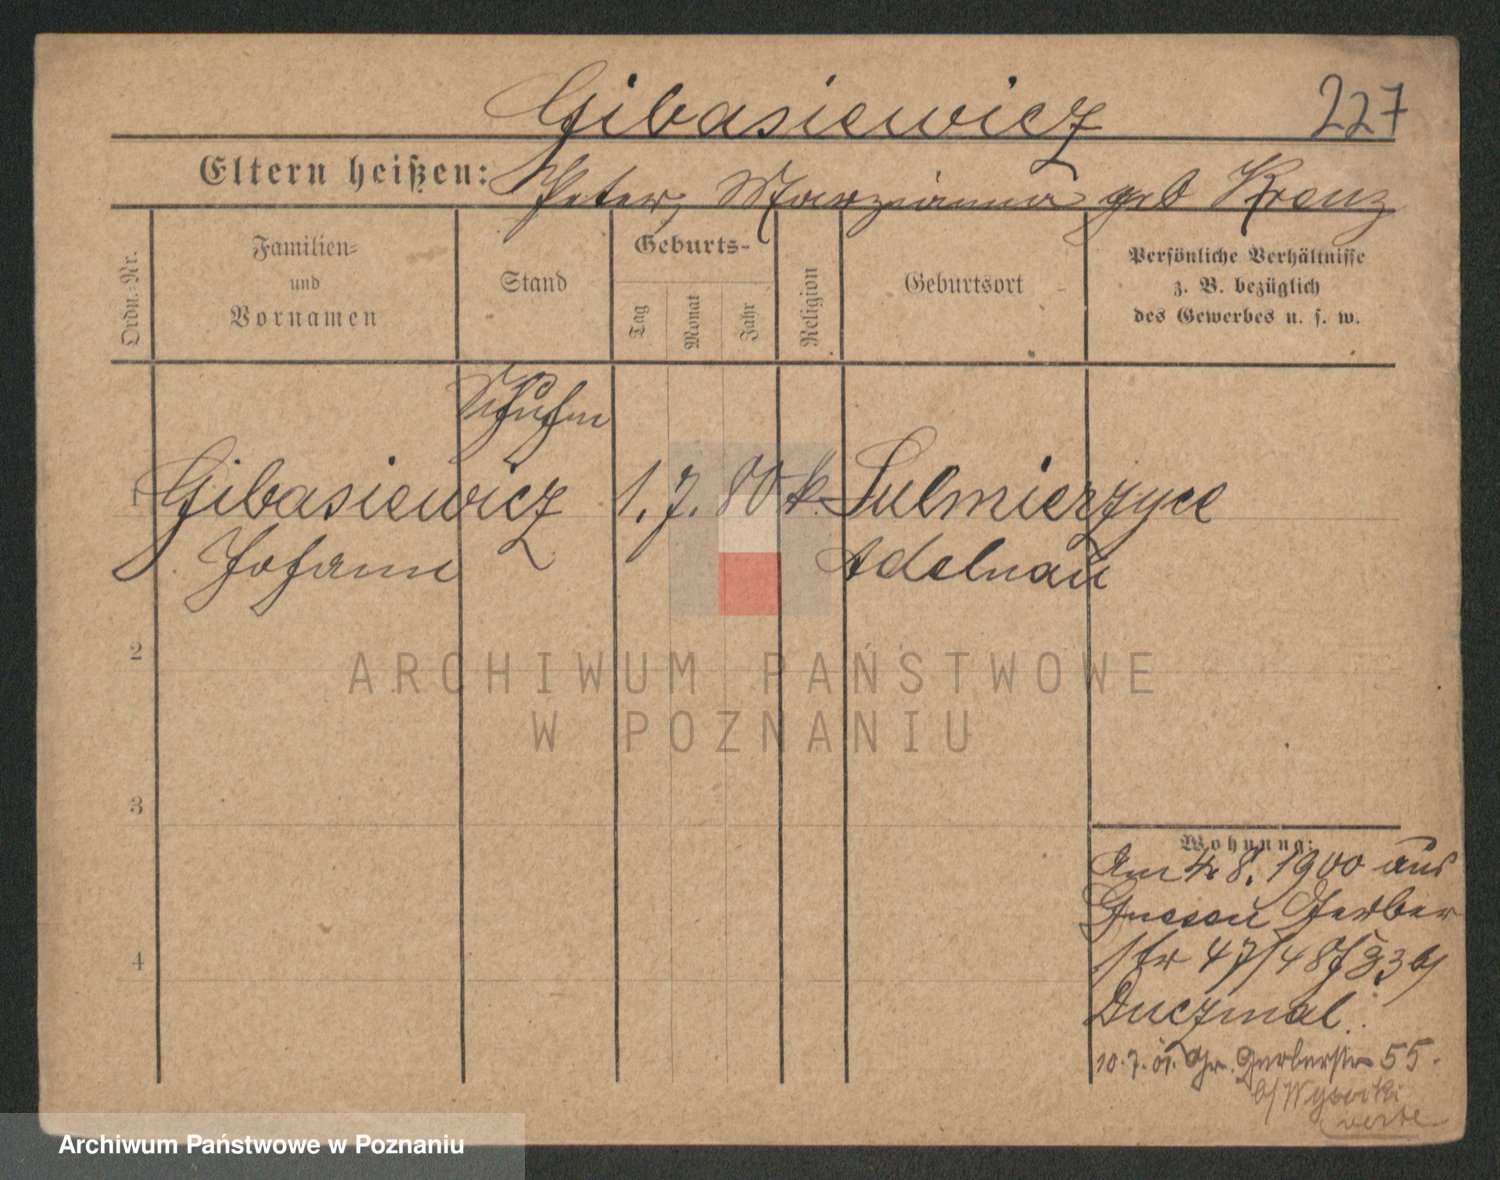 Gibasiewicz 227
Eltern heißen: Peter, Marzianna geb Kranz
Ordn.-Nr.
Familien- und Vornamen
Stand
Geburts-
Tag Monat Jahr
Religion
Geburtsort
Persönliche Verhältnisse
z. B. bezüglich
des Gewerbes u. s. w.
Schuhm
1 Gibasiewicz 1. 7. 80 k. Sulmierzyce
Johann Adelnau
2
3
4
Wohnung:
Am 4. 8. 1900 aus
Gnesen Gerber
str 47/48 b/
Duczmal.
10.7.01. Gr. Gerberstr 55.
b/ Wysocki
verte
ARCHIWUM PAŃSTWOWE
W POZNANIU
Archiwum Państwowe w Poznaniu